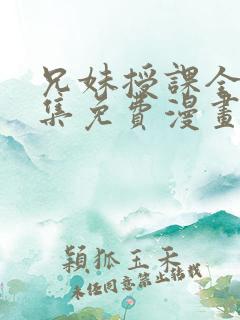 兄妹授課全
集免費漫畫
穎狐玉禾
未任同意禁止转载